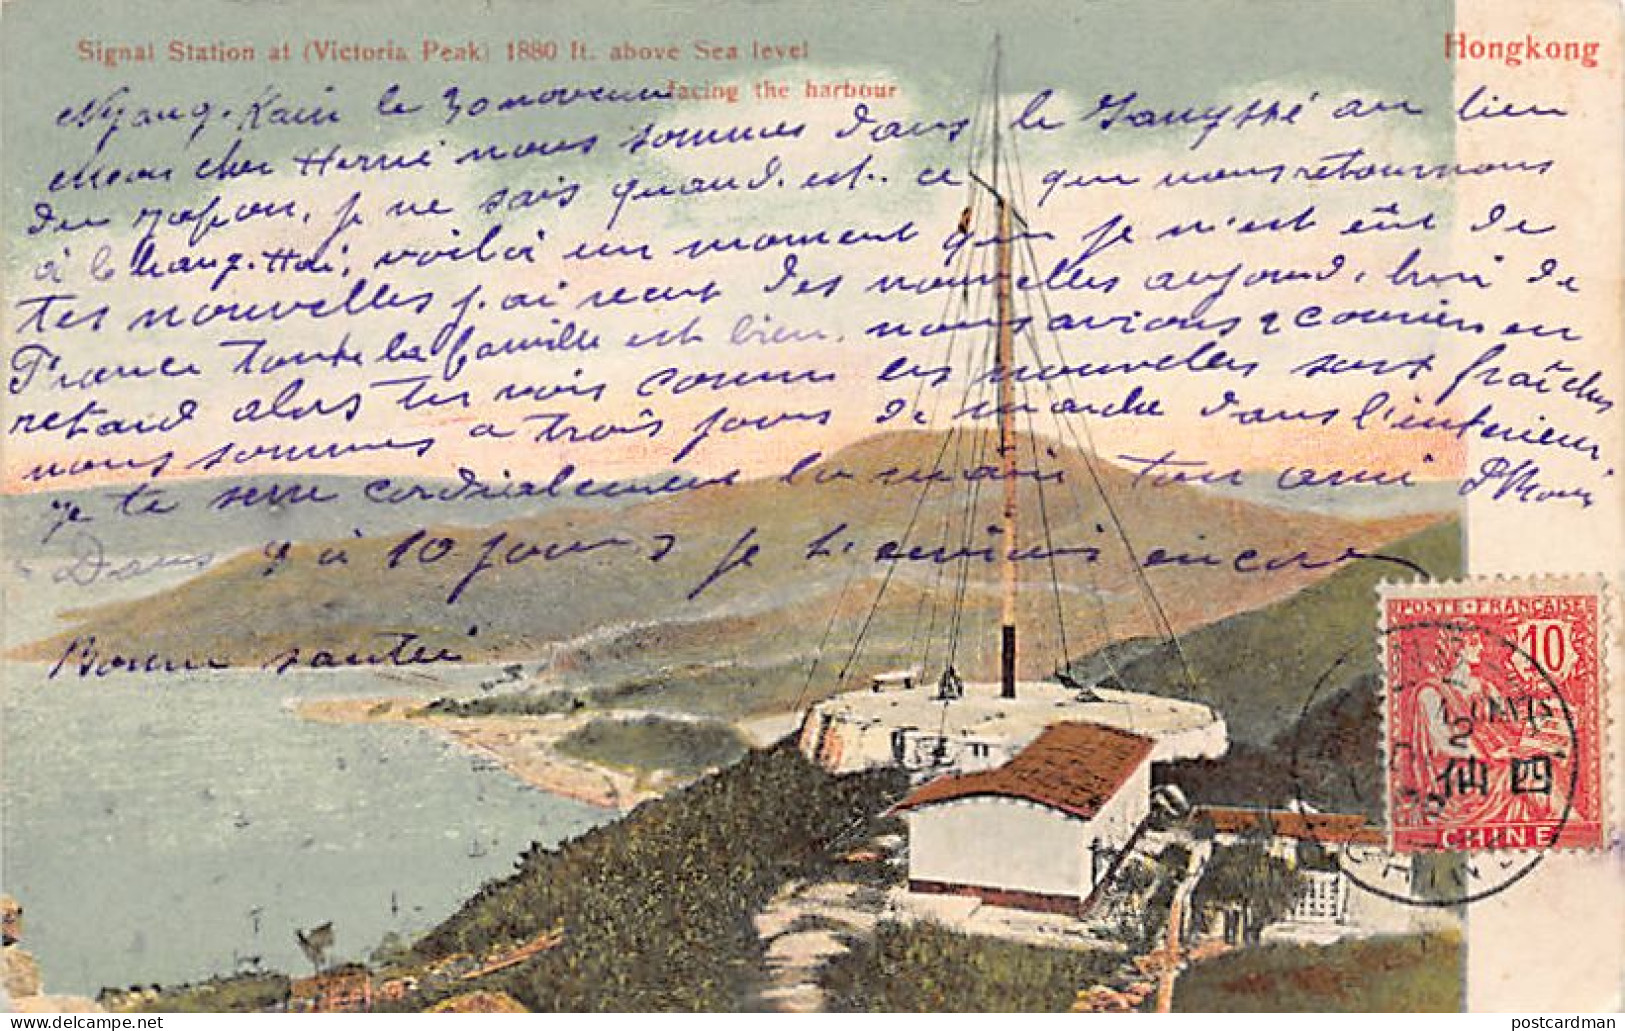 Signal Station at (Victoria Peak) 1880 ft. above Sea level
facing the harbour
Hongkong
Ngang-Kain le 30 novemb
Mon cher Hervé nous sommes dans le au lieu
du Japon, je ne sais quand-est-ce que nous retournons
à Chang-Haï, voilà un moment que je n'est eût de
tes nouvelles j-ai reçut des nouvelles aujourd'hui de
France toute la famille est bien, nous avions 2 courriers en
retard alors tu vois comme les nouvelles sont fraîches
nous sommes a trois jours de marche dans l'intérieur,
je te serre cordialement la main ton ami
Dans 9 à 10 jours je t'ecrirais encore
Bonne santée
POSTE FRANÇAISE
10
4 CENTS
仙四
CHINE
CHINE
postcardman